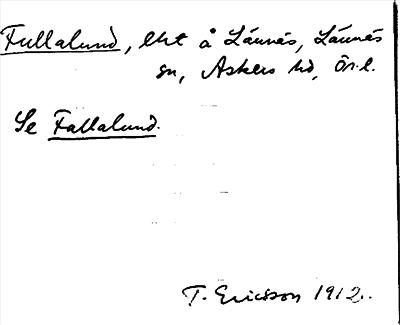 Fullalund, lht å Lännäs, Lännäs
sn, Askers hd, Ör. l.
Se Fallalund.
T. Ericsson 1912.